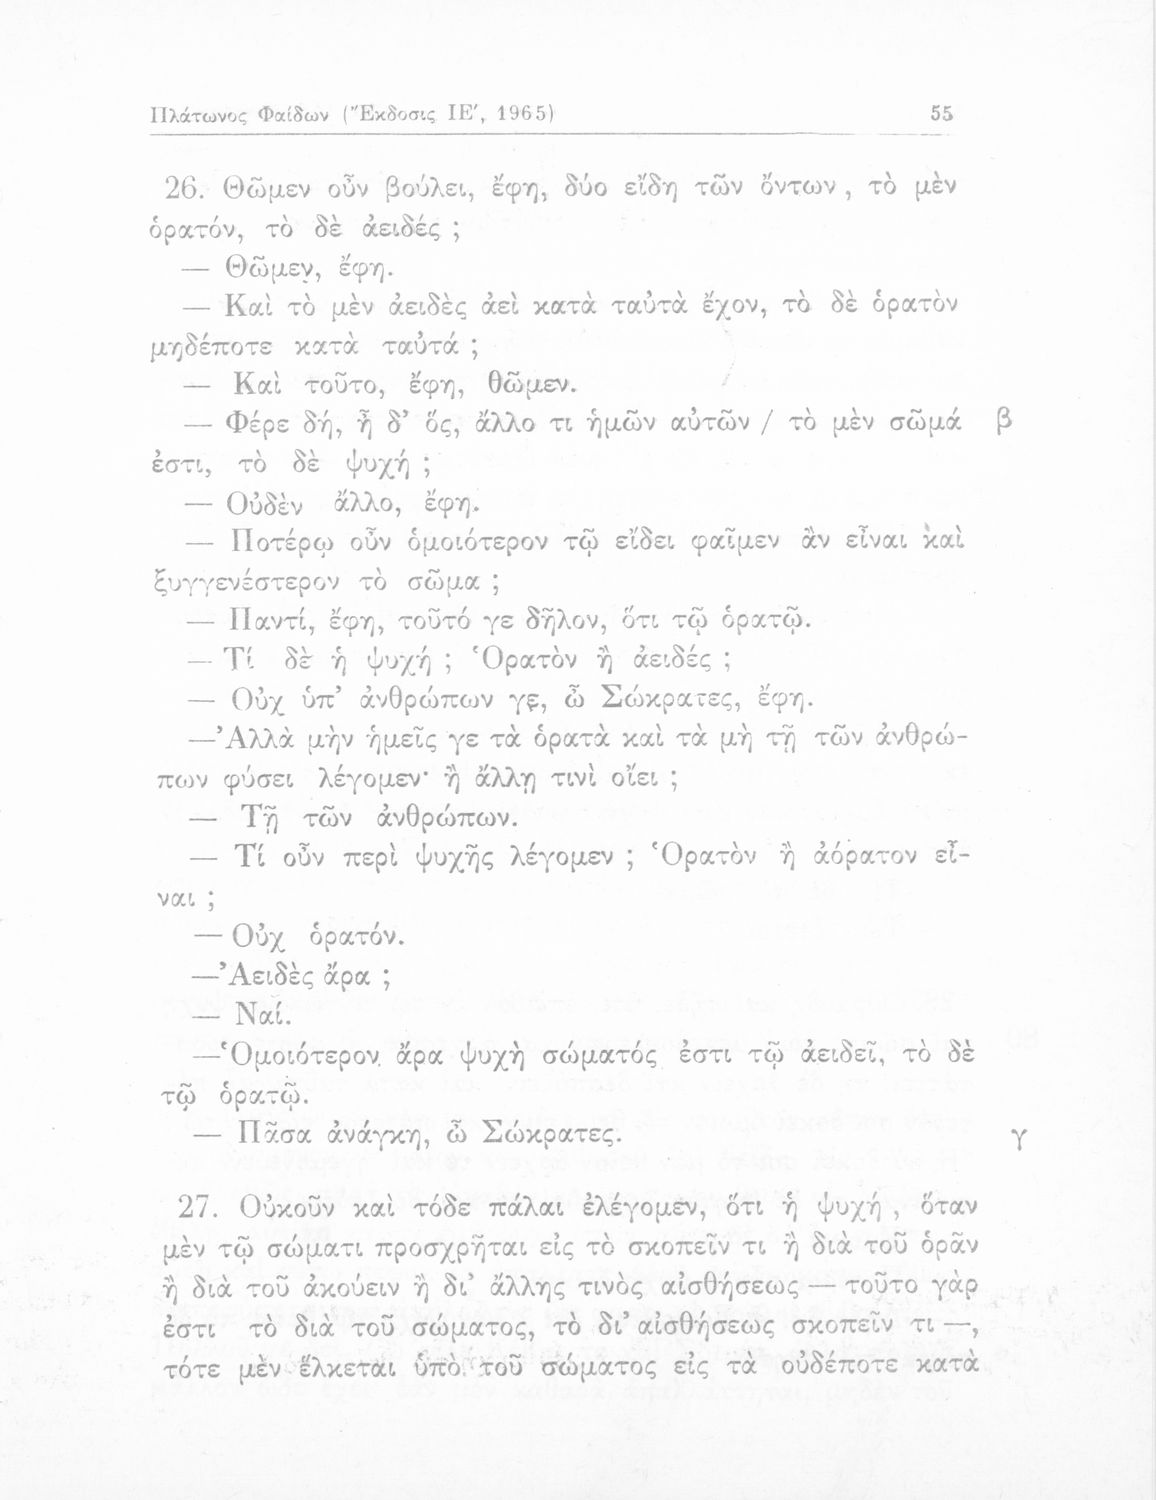 Πλάτωνος Φαίδων (Ἔκδοσις ΙΕ', 1965) 55
26. Θῶμεν οὖν βούλει, ἔφη, δύο εἴδη τῶν ὄντων, τὸ μὲν
ὁρατόν, τὸ δὲ ἀειδές ;
— Θῶμεν, ἔφη.
— Καὶ τὸ μὲν ἀειδὲς ἀεὶ κατὰ ταὐτὰ ἔχον, τὸ δὲ ὁρατὸν
μηδέποτε κατὰ ταὐτά ;
— Καὶ τοῦτο, ἔφη, θῶμεν.
— Φέρε δή, ἦ δ’ ὅς, ἄλλο τι ἡμῶν αὐτῶν / τὸ μὲν σῶμά β
ἐστι, τὸ δὲ ψυχή ;
— Οὐδὲν ἄλλο, ἔφη.
— Ποτέρῳ οὖν ὁμοιότερον τῷ εἴδει φαῖμεν ἂν εἶναι καὶ
ξυγγενέστερον τὸ σῶμα ;
— Παντί, ἔφη, τοῦτό γε δῆλον, ὅτι τῷ ὁρατῷ.
— Τί δὲ ἡ ψυχή ; Ὁρατὸν ἢ ἀειδές ;
— Οὐχ ὑπ’ ἀνθρώπων γε, ὦ Σώκρατες, ἔφη.
—Ἀλλὰ μὴν ἡμεῖς γε τὰ ὁρατὰ καὶ τὰ μὴ τῇ τῶν ἀνθρώ-
πων φύσει λέγομεν· ἢ ἄλλῃ τινὶ οἴει ;
— Τῇ τῶν ἀνθρώπων.
— Τί οὖν περὶ ψυχῆς λέγομεν ; Ὁρατὸν ἢ ἀόρατον εἶ-
ναι ;
— Οὐχ ὁρατόν.
—Ἀειδὲς ἄρα ;
— Ναί.
—Ὁμοιότερον ἄρα ψυχὴ σώματός ἐστι τῷ ἀειδεῖ, τὸ δὲ
τῷ ὁρατῷ.
— Πᾶσα ἀνάγκη, ὦ Σώκρατες. γ
27. Οὐκοῦν καὶ τόδε πάλαι ἐλέγομεν, ὅτι ἡ ψυχή, ὅταν
μὲν τῷ σώματι προσχρῆται εἰς τὸ σκοπεῖν τι ἢ διὰ τοῦ ὁρᾶν
ἢ διὰ τοῦ ἀκούειν ἢ δι’ ἄλλης τινὸς αἰσθήσεως — τοῦτο γάρ
ἐστι τὸ διὰ τοῦ σώματος, τὸ δι’ αἰσθήσεως σκοπεῖν τι —,
τότε μὲν ἕλκεται ὑπὸ τοῦ σώματος εἰς τὰ οὐδέποτε κατὰ